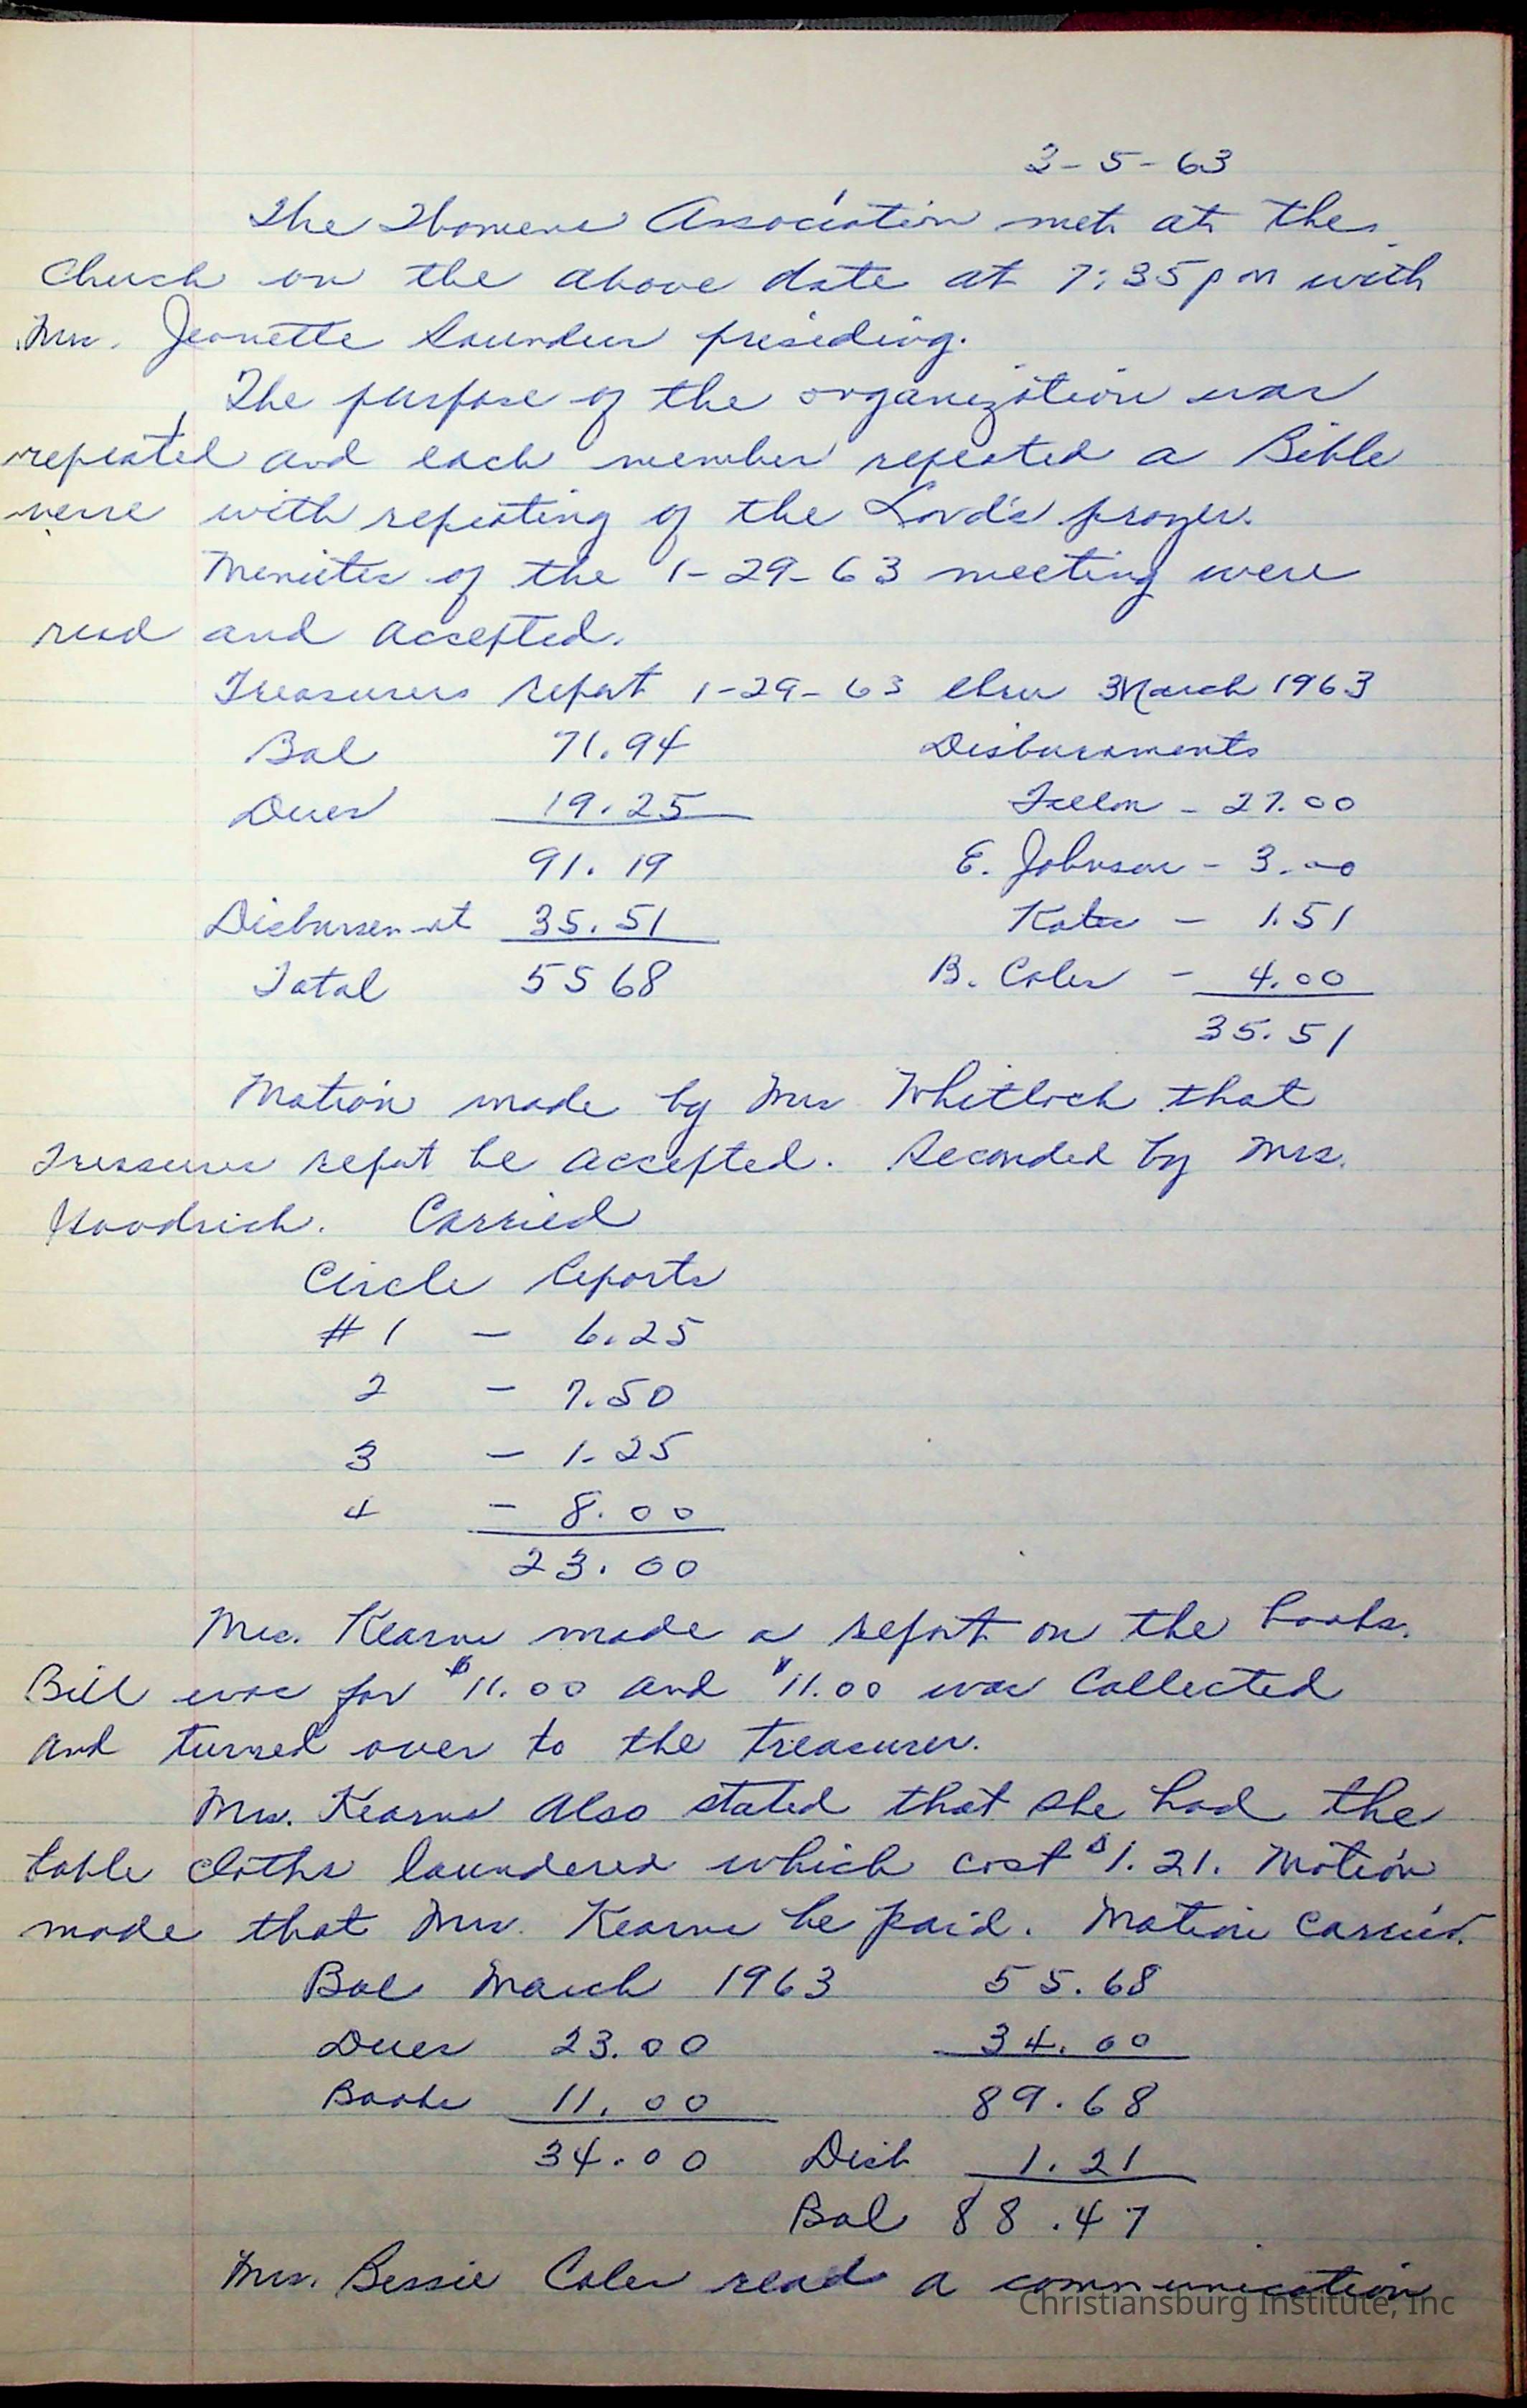 3-5-63
The Womens Association met at the
Church on the above date at 7:35 pm with
Mrs. Jeanette Saunders presiding.
The purpose of the organization was
repeated and each member repeated a Bible
verse with repeating of the Lord's prayer.
Minutes of the 1-29-63 meeting were
read and accepted.
Treasurers report 1-29-63 thru 3 March 1963
Bal 71.94 Disbursments
Dues 19.25 - 27.00
91.19 E. Johnson - 3.00
Disbursement 35.51 Kates - 1.51
Total 55 68 B. Coles - 4.00
35.51
Motion made by Mrs Whitlock that
Treasures report be accepted. Seconded by Mrs.
Goodrich. Carried
Circle Reports
#1 - 6.25
2 - 7.50
3 - 1.25
4 - 8.00
23.00
Mrs. Kearns made a report on the books.
Bill was for $11.00 and $11.00 was collected
and turned over to the treasurer.
Mrs. Kearns also stated that she had the
table cloths laundered which cost $1.21. Motion
made that Mrs. Kearns be paid. Motion carried.
Bal March 1963 55.68
Dues 23.00 34.00
Books 11.00 89.68
34.00 Disb 1.21
Bal 88.47
Mrs. Bessie Coles read a communication
Christiansburg Institute, Inc